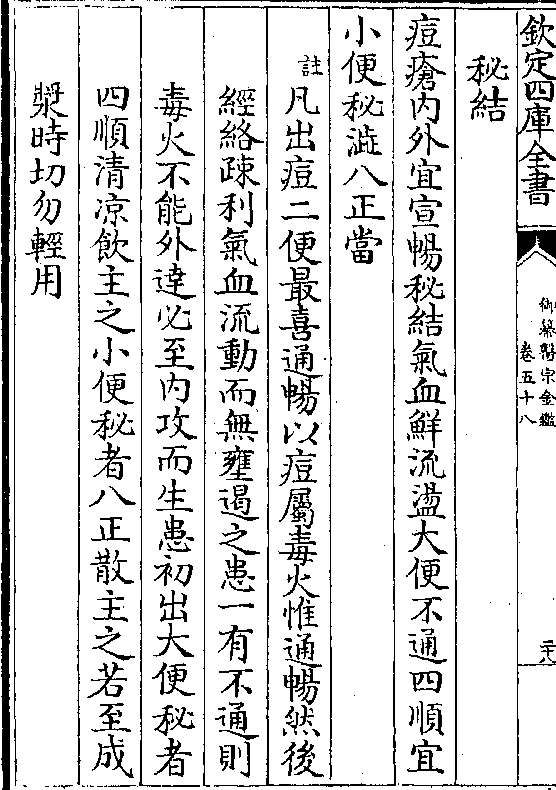 欽定四庫全書
御纂醫宗金鑑
卷五十八
二十八
秘結
痘瘡内外宜宣暢秘結氣血鮮流盪大便不通四順宜
小便秘澁八正當
註凡出痘二便最喜通暢以痘屬毒火惟通暢然後
經絡疎利氣血流動而無壅遏之患一有不通則
毒火不能外達必至内攻而生患初出大便秘者
四順清凉飲主之小便秘者八正散主之若至成
漿時切勿輕用